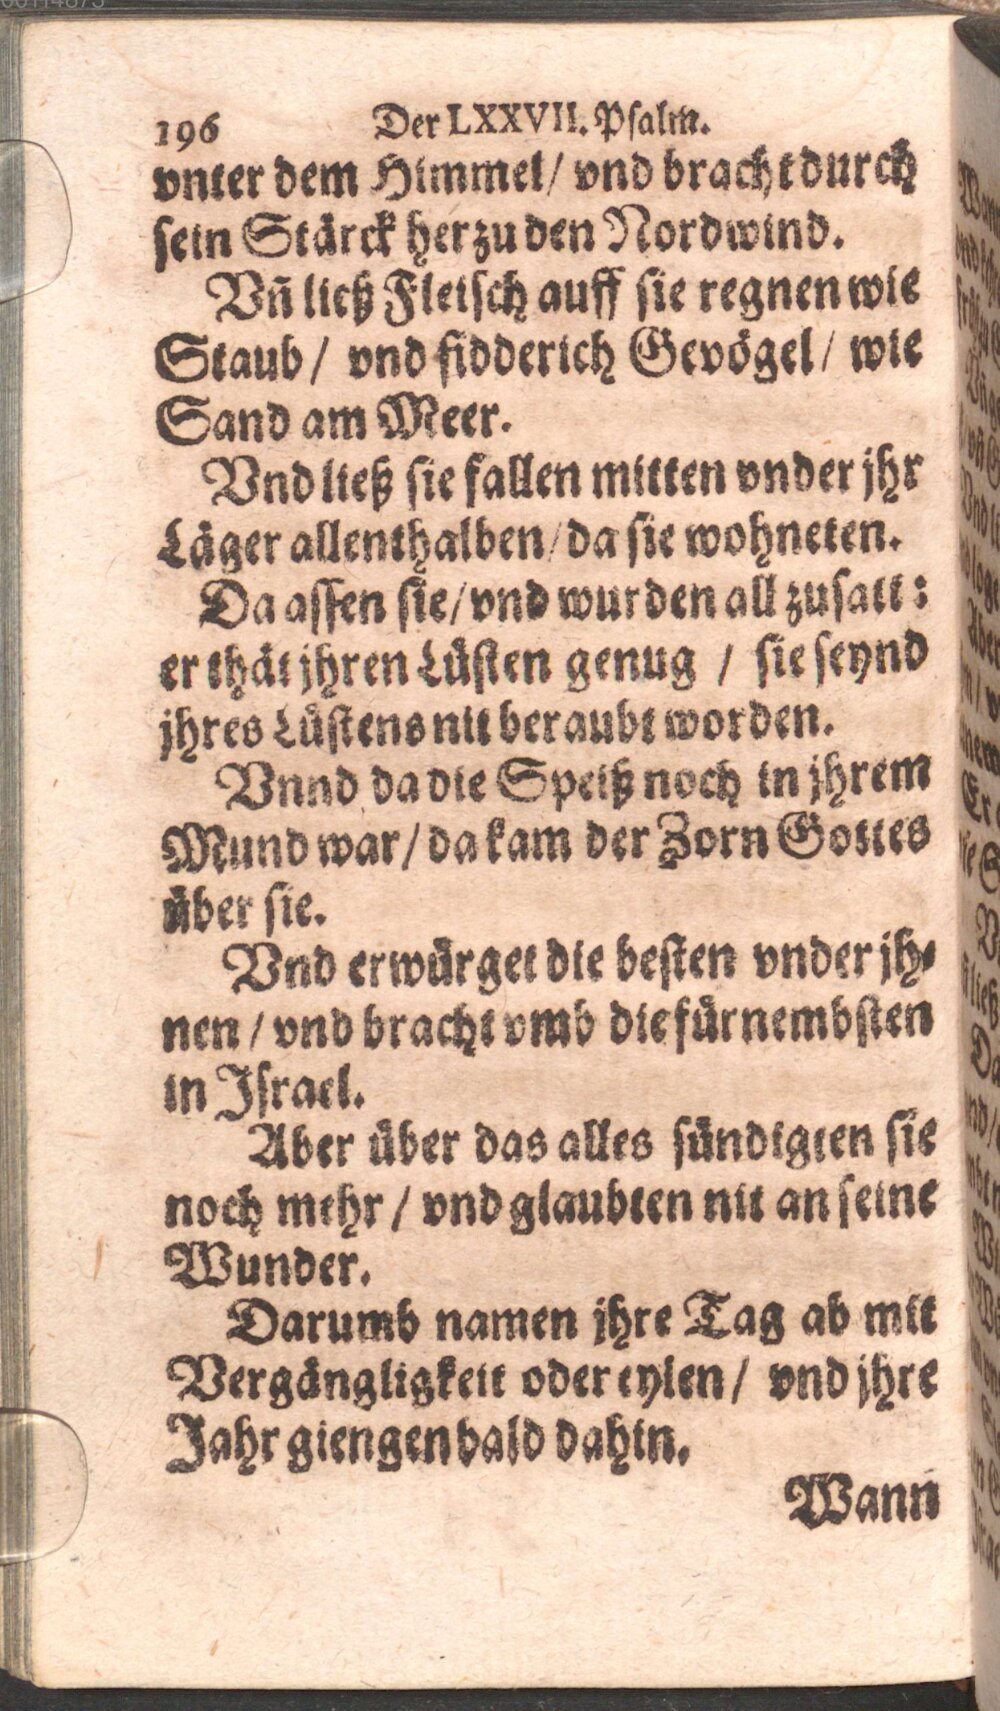 196 Der LXXVII. Psalm.
vnter dem Himmel/ vnd bracht durch
sein Stärck herzu den Nordwind.
Vn̄ ließ Fleisch auff sie regnen wie
Staub/ vnd fidderich Gevögel/ wie
Sand am Meer.
Vnd ließ sie fallen mitten vnder jhr
Läger allenthalben/ da sie wohneten.
Da assen sie/ vnd wurden all zu satt:
er thät jhren Lüsten genug / sie seynd
jhres Lüstens nit beraubt worden.
Vnnd da die Speiß noch in jhrem
Mund war/ da kam der Zorn Gottes
über sie.
Vnd erwürget die besten vnder jh⸗
nen/ vnd bracht vmb die fürnembsten
in Israel.
Aber über das alles sündigten sie
noch mehr/ vnd glaubten nit an seine
Wunder.
Darumb namen jhre Tag ab mit
Vergängligkeit oder eylen/ vnd jhre
Jahr giengen bald dahin.
Wann